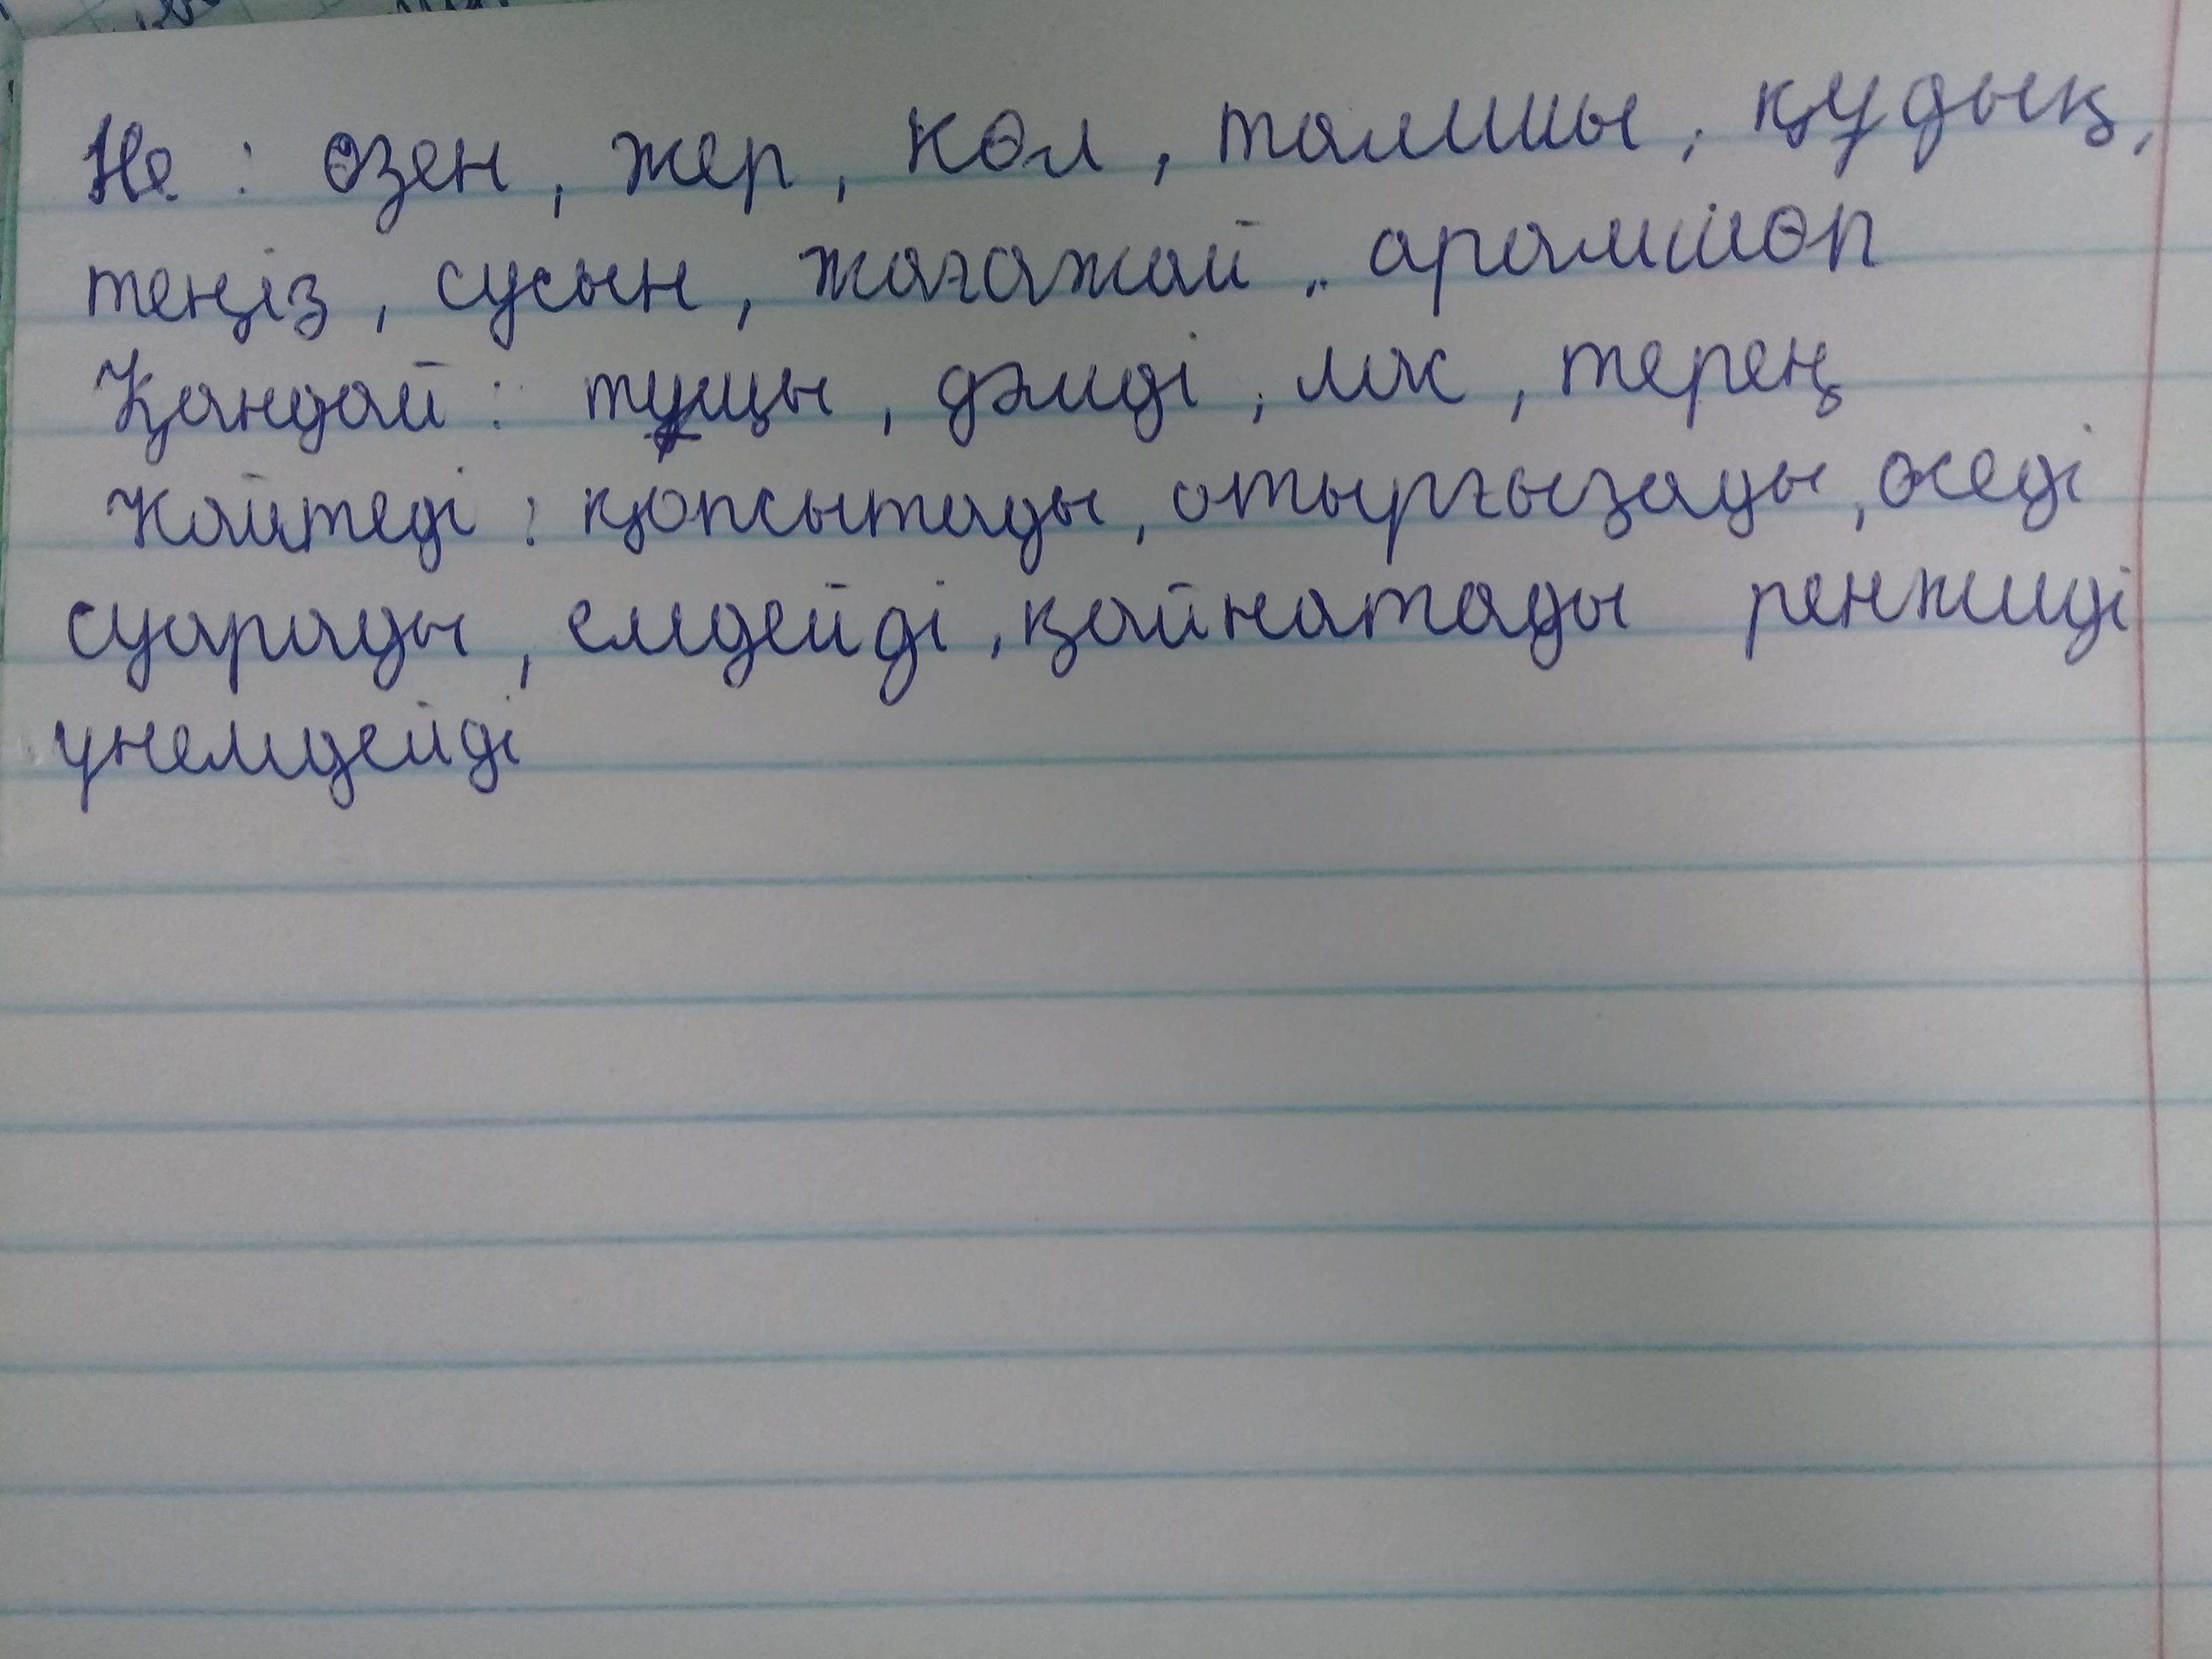 Не : өзен , жер , көл , тамшы , құдық ,
теңіз , сусын , жағажай , арамшөп
Қандай : тұщы , дәмді , мөл , терең
Қайтеді : қопсытады , отырғызады , өседі
суарады , емдейді , қайнатады ренжиді
үнемдейді